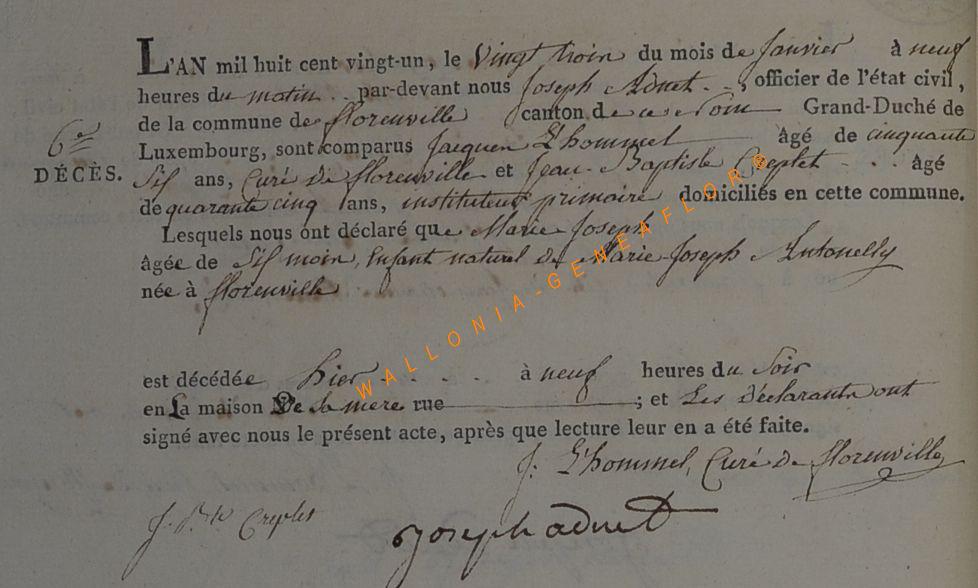 L'AN mil huit cent vingt-un, le Vingt trois du mois de Janvier à neuf
heures du matin par-devant nous Joseph Adnet, officier de l'état civil,
de la commune de florenville canton de ce Nom Grand-Duché de
Luxembourg, sont comparus Jacques L'hommel âgé de cinquante
6e
DÉCÈS.
Six ans, Curé de florenville et Jean-Baptiste Creplet âgé
de quarante cinq ans, instituteur primaire domiciliés en cette commune.
Lesquels nous ont déclaré que Marie Joseph
âgée de Six mois, Enfant naturel de Marie-Joseph Antonelly
née à florenville
est décédée hier à neuf heures du Soir
en La maison De Sa mere rue ; et Les Déclarants ont
signé avec nous le présent acte, après que lecture leur en a été faite.
J. L'hommel, Curé de florenville
J. Bte Creplet
Joseph adnet
WALLONIA-GENEAFLOR®